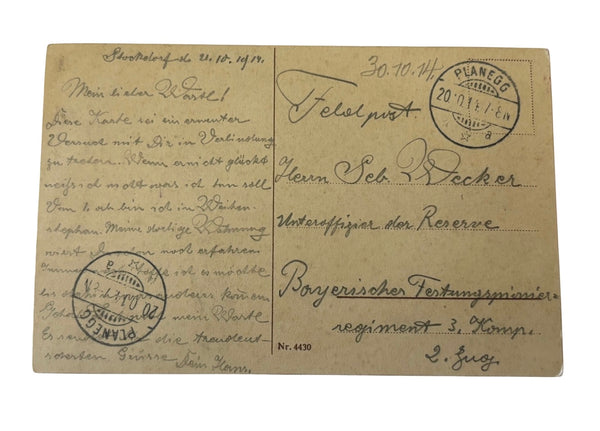 Stockdorf de 21.10.1914.
Mein lieber Wastl!
Diese Karte sei ein erneuter
Versuch mit Dir in Verbindung
zu treten. Wenn er nicht glückt
weiß ich nicht was ich tun soll
Vom 1. ab bin ich in Weihen-
stephan. Meine dortige Wohnung
noch erfahren
ich es möchte
anders kommen
mein Wastl
Es die
Grüsse Dein Hans.
30.10.14.
PLANEGG
7-8N
a
Feldpost.
Herrn Seb. Wecker
Unteroffizier der Reserve
Bayerischer Festungspionier-
regiment 3. Komp.
2. Zug
PLANEGG
20
a
Nr. 4430